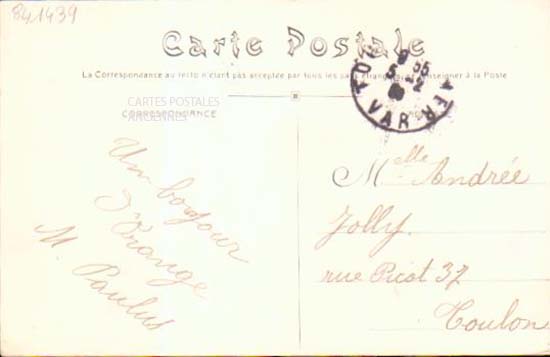 841439
Carte Postale
La Correspondance au recto n'étant pas acceptée par tous les pays étrangers à la Poste
CARTES POSTALES
ANCIENNES
CORRESPONDANCE
VAR
Un bonjour
d'Orange
M. Paulus
Melle Andrée
Jolly.
rue Picot 37
Toulon